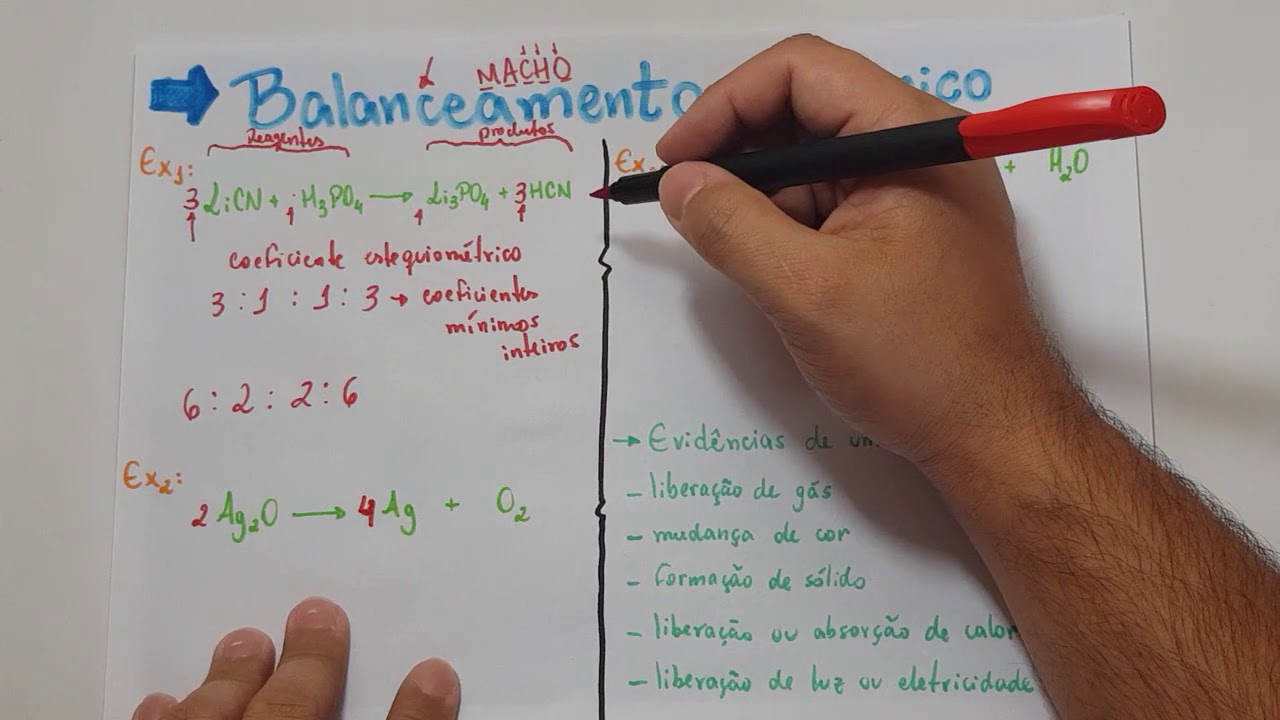 MACHO
Balanceamento
Reagentes
produtos
Ex1:
3 LiCN + 1 H3PO4 → Li3PO4 + 3 HCN
coeficiente estequiométrico
3 : 1 : 1 : 3 → coeficientes
mínimos
inteiros
6 : 2 : 2 : 6
Ex2:
2 Ag2O → 4 Ag + O2
+ H2O
→ Evidências de
- liberação de gás
- mudança de cor
- formação de sólido
- liberação ou absorção de calor
- liberação de luz ou eletricidade